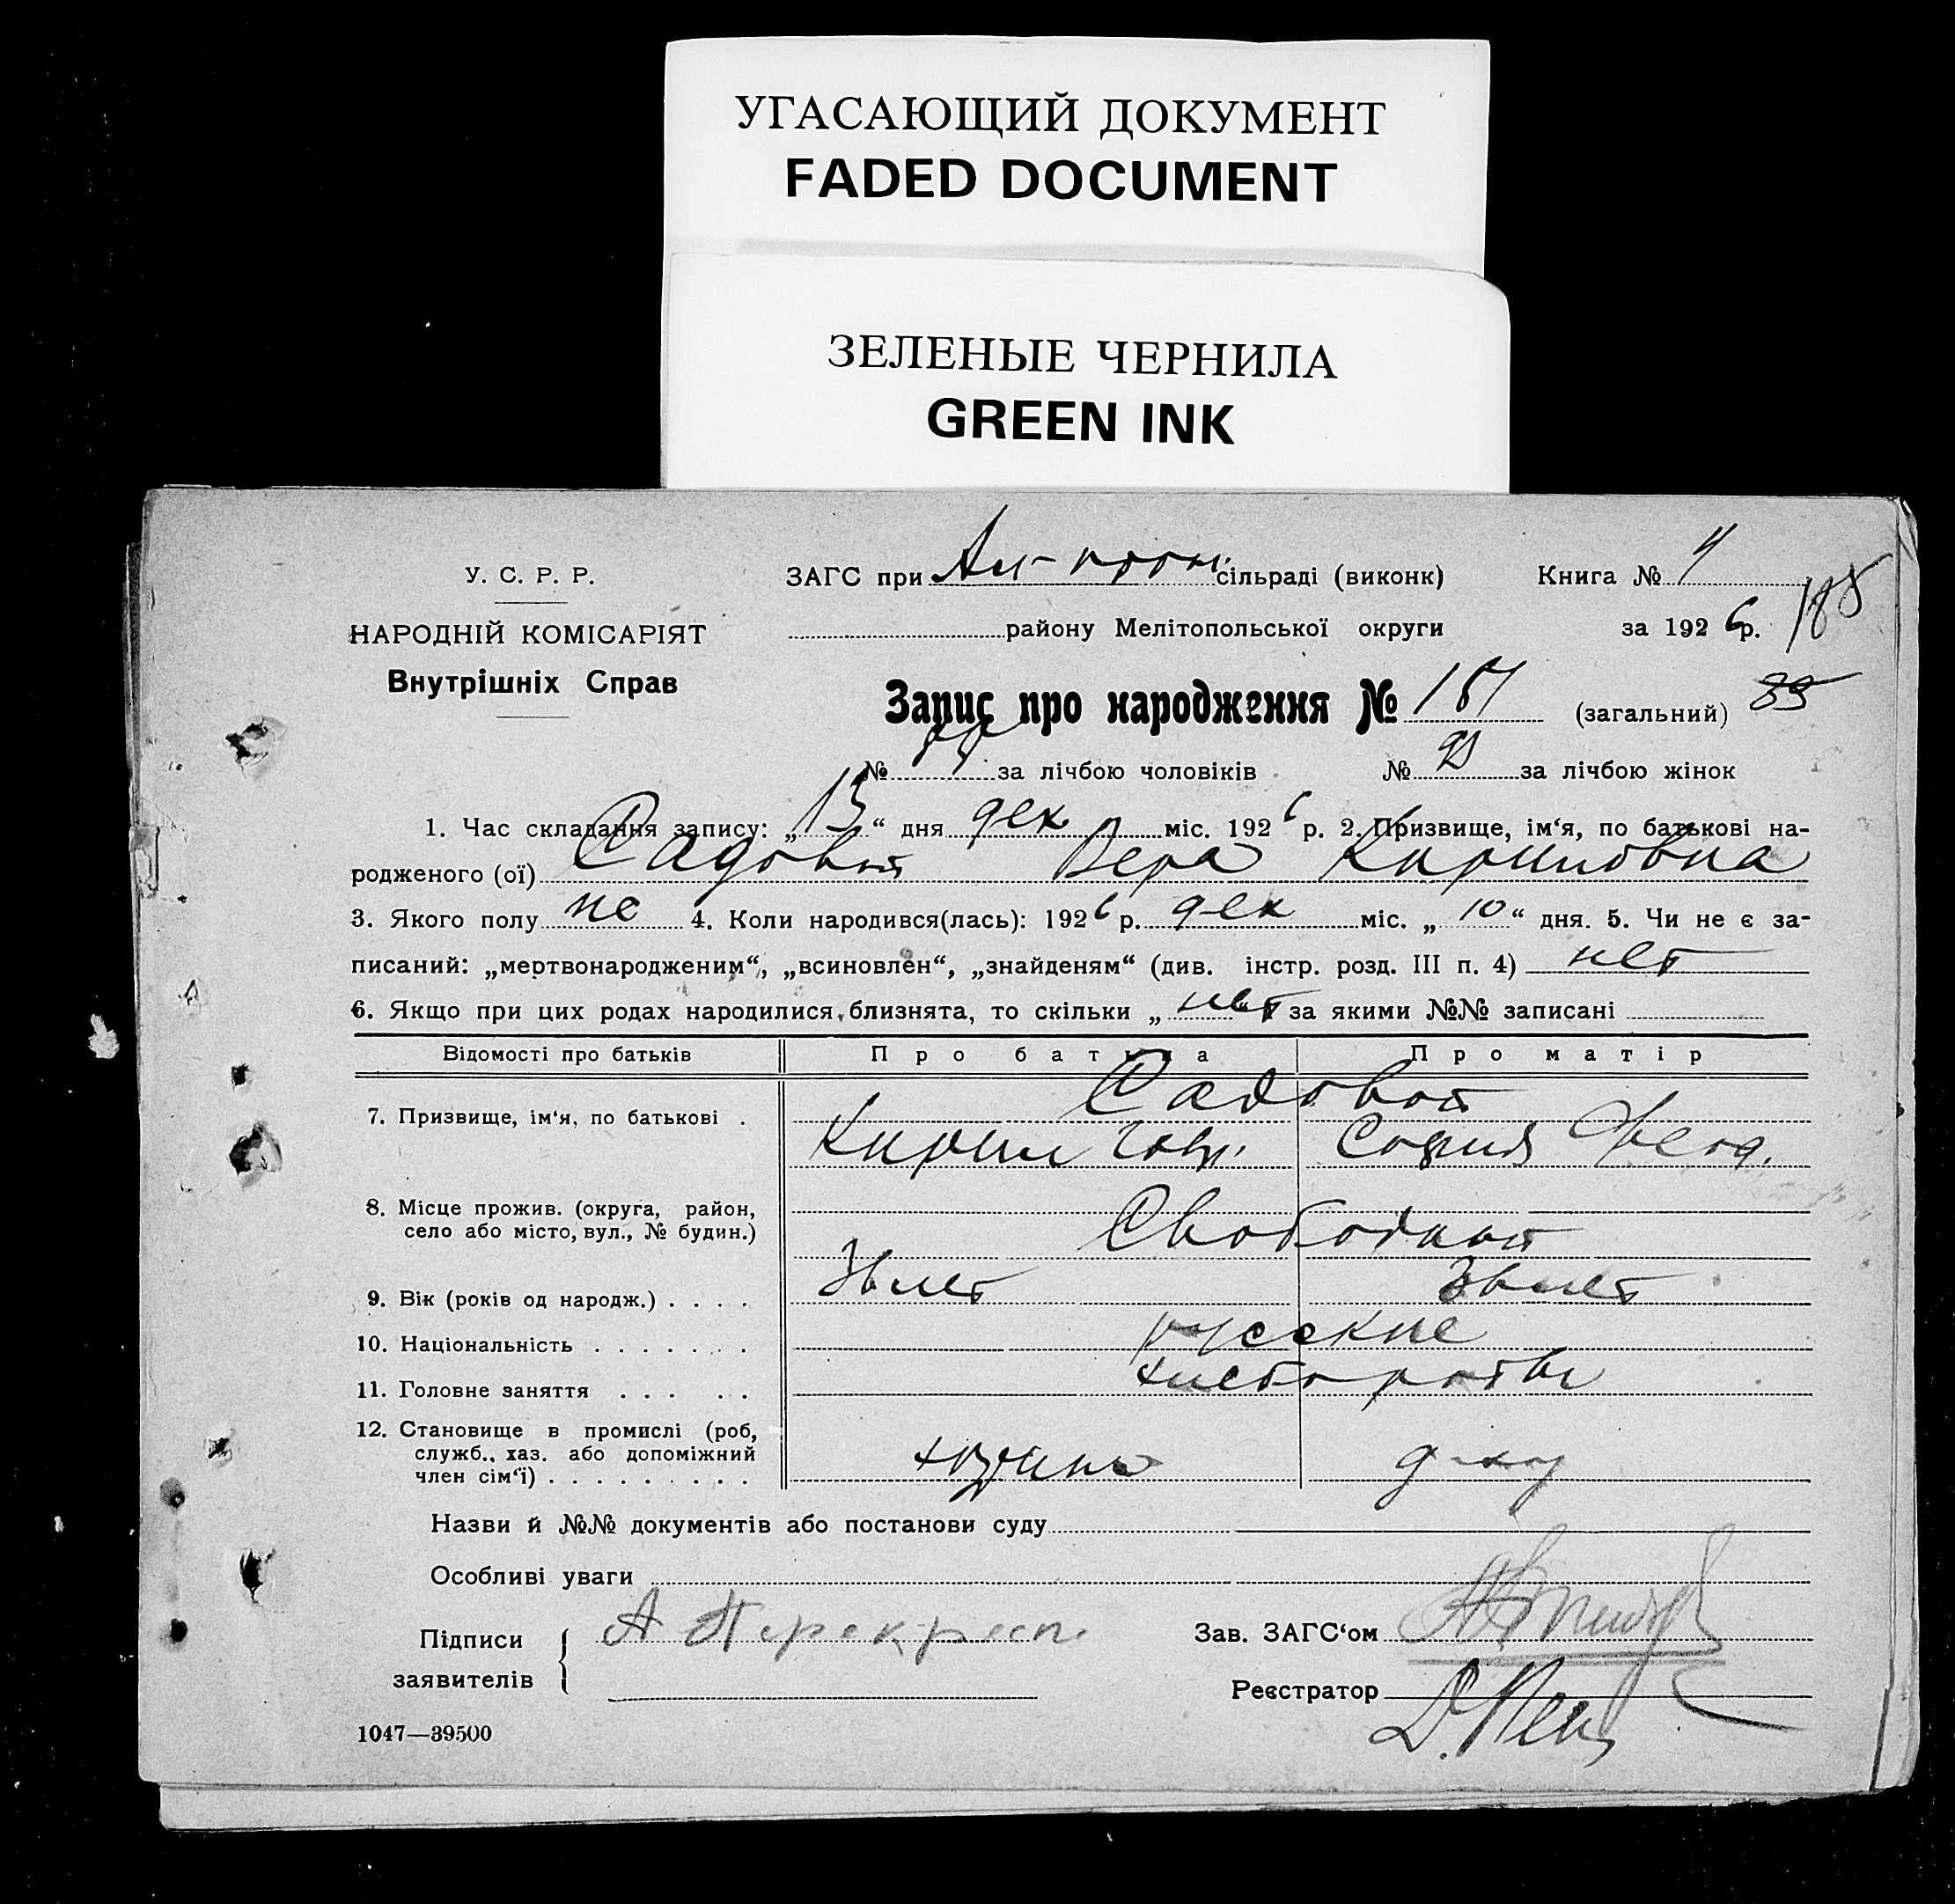 УГАСАЮЩИЙ ДОКУМЕНТ
FADED DOCUMENT
ЗЕЛЕНЫЕ ЧЕРНИЛА
GREEN INK
У. С. Р. Р.
НАРОДНІЙ КОМІСАРІЯТ
Внутрішніх Справ
ЗАГС при сільраді (виконк)
Книга № 4
району Мелітопольської округи
за 1926 р.
188
Запис про народження № (загальний)
39
№ за лічбою чоловіків № за лічбою жінок
1. Час складання запису: „13“ дня дек міс. 1926 р. 2. Призвище, ім‘я, по батькові на-
родженого (ої) Садовая Вера Кириловна
3. Якого полу 4. Коли народився(лась): 1926 р. дек міс. „10“ дня. 5. Чи не є за-
писаний: „мертвонародженим“, „всиновлен“, „знайденям“ (див. інстр. розд. III п. 4) нет
6. Якщо при цих родах народилися близнята, то скільки „нет“ за якими №№ записані
Відомості про батьків Про батька Про матір
7. Призвище, ім‘я, по батькові . Садовой
Кирил София
8. Місце прожив. (округа, район,
село або місто, вул., № будин.)
9. Вік (років од народж.) . . . . лет лет
10. Національність . . . . . . . русские
11. Головне заняття . . . . . хлебороб
12. Становище в промислі (роб,
служб., хаз. або допоміжний
член сім‘ї) . . . . . . . . .
Назви й №№ документів або постанови суду
Особливі уваги
Підписи
заявителів
Зав. ЗАГС‘ом
Реєстратор
1047—39500